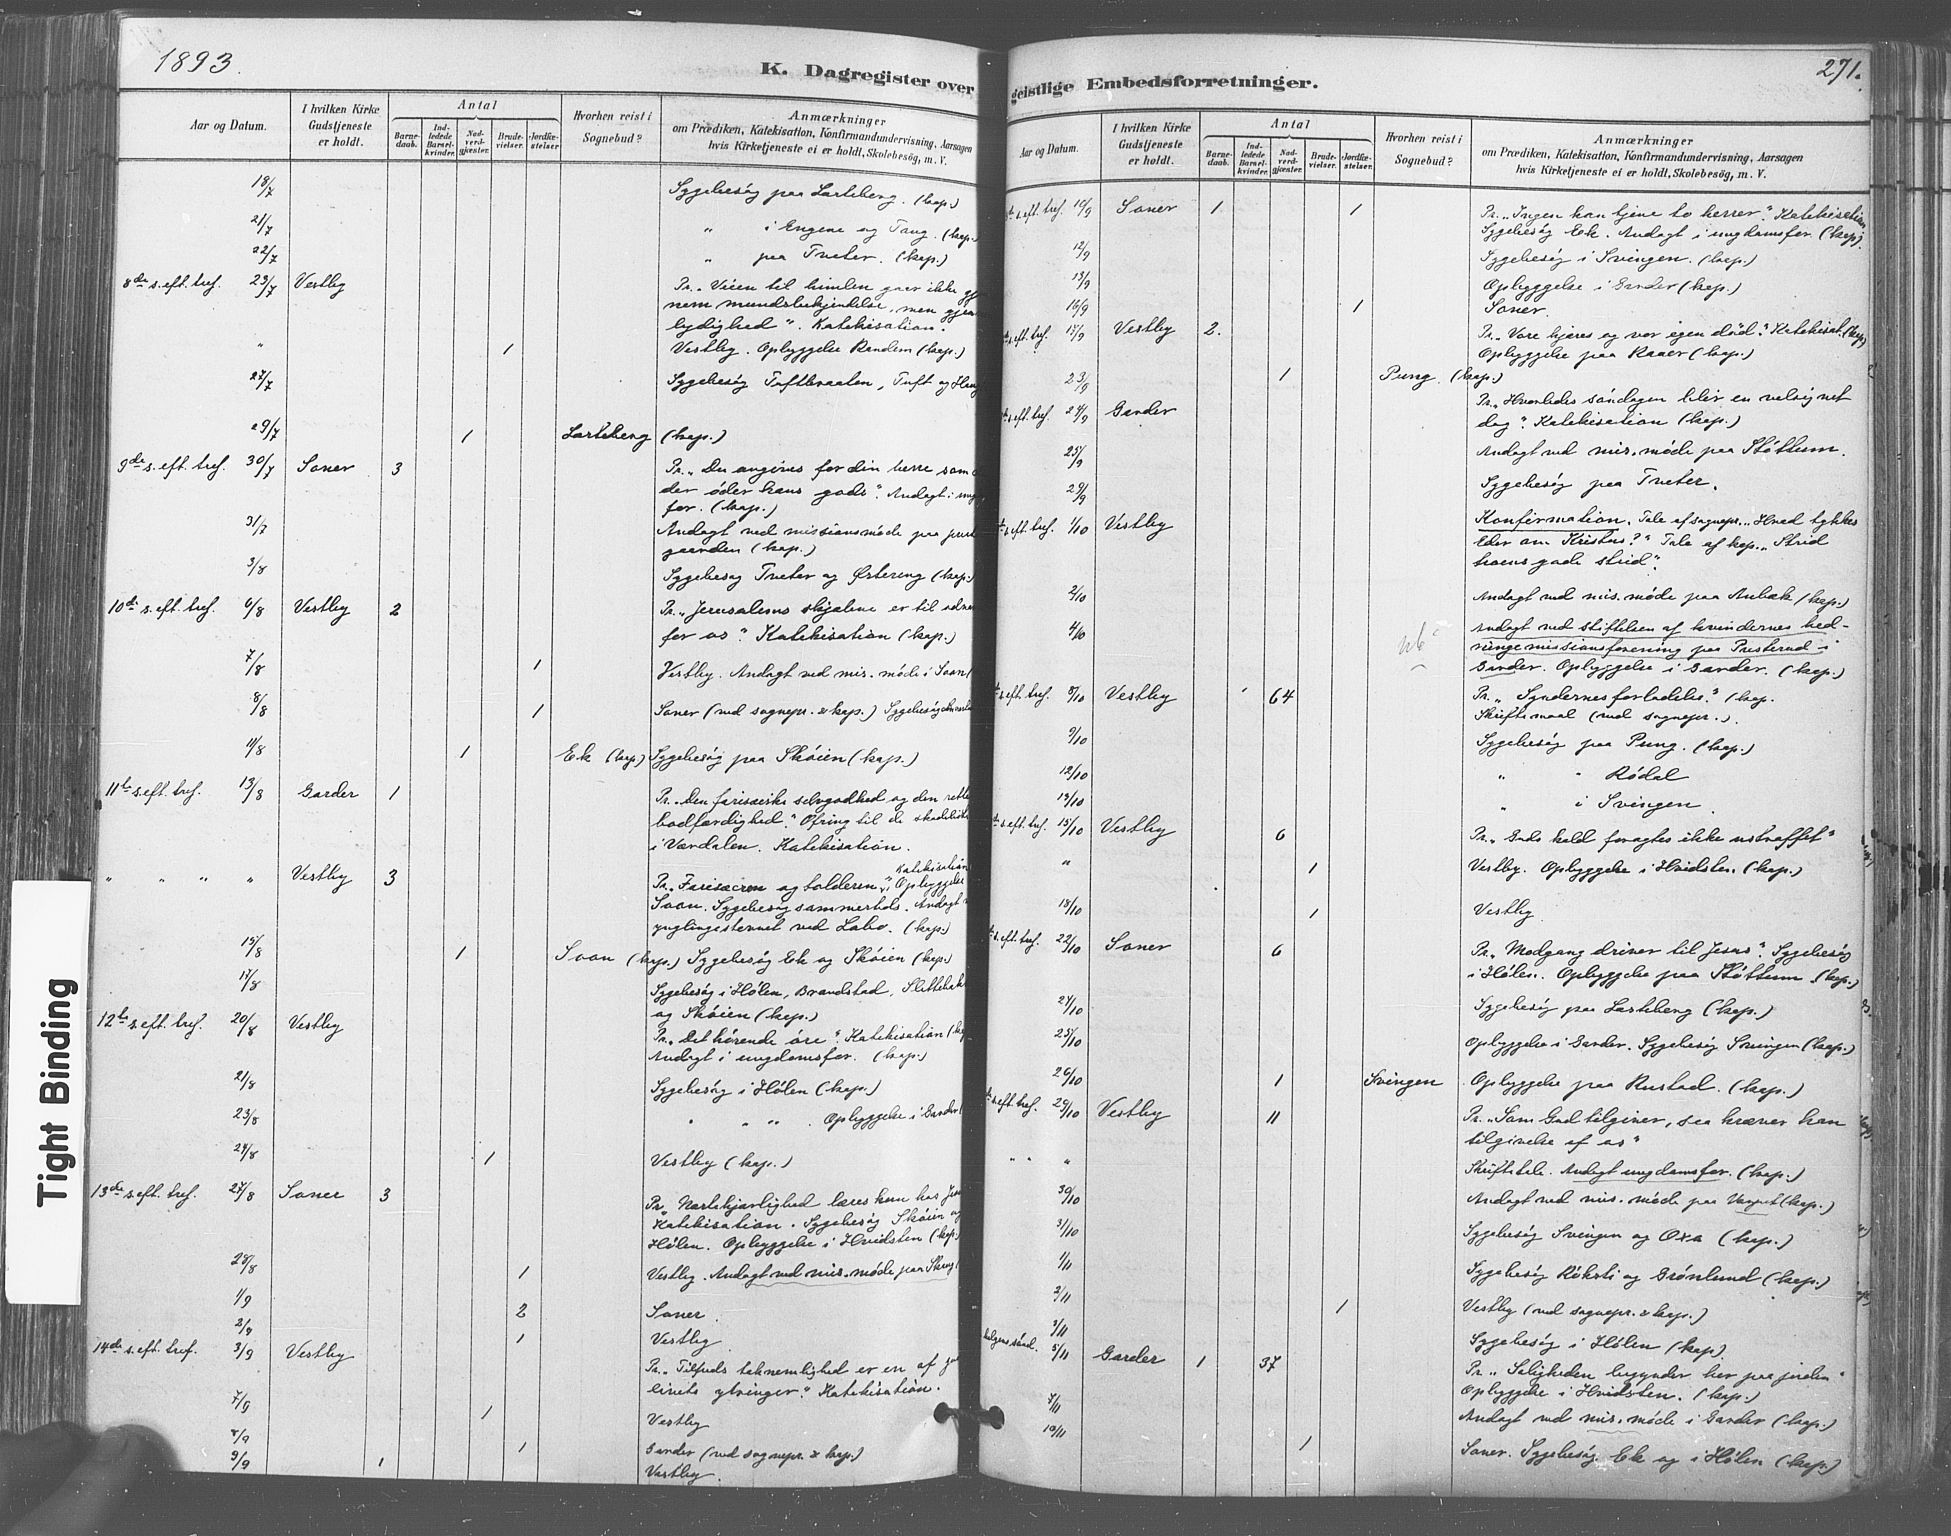 1893.
K. Dagregister over
Aar og Datum.
I hvilken Kirke Gudstjeneste er holdt.
Antal
Barnedaab.
Indledede Barselkvinder.
Nadverdgjæster.
Brudevielser.
Jordfæstelser
Hvorhen reist i Sognebud?
Anmærkninger
om Prædiken, Katekisation, Konfirmandundervisning, Aarsagen
hvis Kirketjeneste ei er holdt, Skolebesøg, m. V.
18/7 Sygebesøg paa Larteberg. (kap.)
21/7 " i Engene og Tang. (kap.
22/7 " paa Tveter. (kap.)
8de s. eft. tref. 23/7 Vestby Pr. „Veien til himlen gaar ikke
nem mundsbekjendelse, men gjen
lydighed". Katekisation.
" 1 Vestby. Opbyggelse Randem (kap.)
27/7 Sygebesøg Tuftbraaten, Tuft og
29/7 1 Larteberg (kap.)
9de s. eft. tref. 30/7 Soner 3 Pr. „Du angives for din herre som
der øder hans gods". Andagt i
for. (kap.)
31/7 Andagt ved missionsmøde paa
gaarden (kap.)
3/8 Sygebesøg Tveter og Østereng (kap.)
10de s. eft. tref. 6/8 Vestby 2 Pr. „Jerusalems skjæbne er til
for os". Katekisation (kap.)
7/8 1 Vestby. Andagt ved mis. møde i Soon
8/8 1 Soner (ved sognepr. & kap.) Sygebesøg
11/8 1 Ek (kap.) Sygebesøg paa Skøien (kap.)
11te s. eft. tref. 13/8 Garder 1 Pr. „Den farisæiske selvgodhed og den rette
bodfærdighed." Ofring til de
i Værdalen. Katekisation.
" " " " Vestby 3 Katekisation
Pr. „Farisæeren og tolderen", Opbyggelse
Soon. Sygebesøg sammesteds. Andagt
ynglingestevnet ved Labo. (kap.)
15/8 1 Soon (kap.) Sygebesøg Ek og Skøien (kap.)
17/8 Sygebesøg i Hølen, Brandstad,
og Skøien (kap.)
12te s. eft. tref. 20/8 Vestby Pr. „Det hørende øre". Katekisation
Andagt i ungdomsfor. (kap.)
21/8 Sygebesøg i Hølen (kap.)
23/8 " " " . Opbyggelse i Garder
24/8 1 Vestby (kap.)
13de s. eft. tref. 27/8 Soner 3 Pr. „Næstekjærlighed læres kun hos
Katekisation. Sygebesøg Skøien og
Hølen. Opbyggelse i Hvidsten (kap.)
28/8 1 Vestby. Andagt ved mis. møde paa
1/9 2 Soner.
2/9 1 Vestby
14de s. eft. tref. 3/9 Vestby Pr. „Tilfreds taknemlighed er en af
livets ytringer." Katekisation.
7/9 1 Vestby
8/9 1 Garder (ved sognepr. & kap.)
9/9 1 Vestby.
geistlige Embedsforretninger.
271.
Aar og Datum.
I hvilken Kirke Gudstjeneste er holdt.
Antal
Barnedaab.
Indledede Barselkvinder.
Nadverdgjæster.
Brudevielser.
Jordfæstelser
Hvorhen reist i Sognebud?
Anmærkninger
om Prædiken, Katekisation, Konfirmandundervisning, Aarsagen
hvis Kirketjeneste ei er holdt, Skolebesøg, m. V.
s. eft. tref. 10/9 Soner 1 1 Pr. „Ingen kan tjene to herrer". Katekisation
Sygebesøg Ek. Andagt i ungdomsfor. (kap.)
12/9 Sygebesøg i Svingen. (kap.)
13/9 Opbyggelse i Garder (kap.)
16/9 1 Soner.
s. eft. tref. 17/9 Vestby 2. Pr. „Vore kjæres og vor egen død." Katekisat. (kap)
Opbyggelse paa Raaer (kap.)
23/9 1 Pung. (kap.)
s. eft. tref. 24/9 Garder Pr. „Hvorledes søndagen bliver en velsignet
dag". Katekisation (kap.)
25/9 Andagt ved mis. møde paa Støttum.
29/9 Sygebesøg paa Tveter.
s. eft. tref. 1/10 Vestby Konfirmation. Tale af sognepr. „Hvad tykkes
Eder om Kristus?" Tale af kap. „Strid
troens gode strid".
2/10 Andagt ved mis. møde paa Aubæk (kap.)
4/10 Andagt ved stiftelsen af kvindernes hed-
ningemissionsforening paa Presterud i
Garder. Opbyggelse i Garder. (kap.)
s. eft. tref. 8/10 Vestby 64 Pr. „Syndernes forladelse." (kap.
Skriftemaal (ved sognepr.).
9/10 Sygebesøg paa Pung. (kap.)
12/10 " " Rødal
14/10 " i Svingen
s. eft. tref. 15/10 Vestby 6 Pr. „Guds kald foragtes ikke ustraffet"
" 1 Vestby. Opbyggelse i Hvidsten. (kap.)
18/10 1 Vestby
s. eft. tref. 22/10 Soner 6 Pr. „Modgang driver til Jesus". Sygebesøg
i Hølen. Opbyggelse paa Støttum. (kap.)
24/10 Sygebesøg paa Larteberg (kap.)
25/10 Opbyggelse i Garder. Sygebesøg Svingen (kap.)
26/10 1 Svingen Opbyggelse paa Rustad. (kap.)
s. eft. tref. 29/10 Vestby 11 Pr. „Som Gud tilgiver, saa kræver han
tilgivelse af os"
" " " Skriftetale. Andagt ungdomsfor. (kap.)
30/10 Andagt ved mis. møde paa (kap.)
31/10 Sygebesøg Svingen og Oxa (kap.)
1/11 Sygebesøg og Grønlund (kap.)
2/11 1 Vestby (ved sognepr. & kap.)
3/11 Sygebesøg i Hølen (kap)
helgens sønd. 5/11 Garder 1 37 Pr. „Saligheden begynder her paa jorden"
Opbyggelse i Hvidsten. (kap.)
7/11 Andagt ved mis. møde i Garder (kap.)
10/11 1 Soner. Sygebesøg Ek og i Hølen (kap.)
Tight Binding